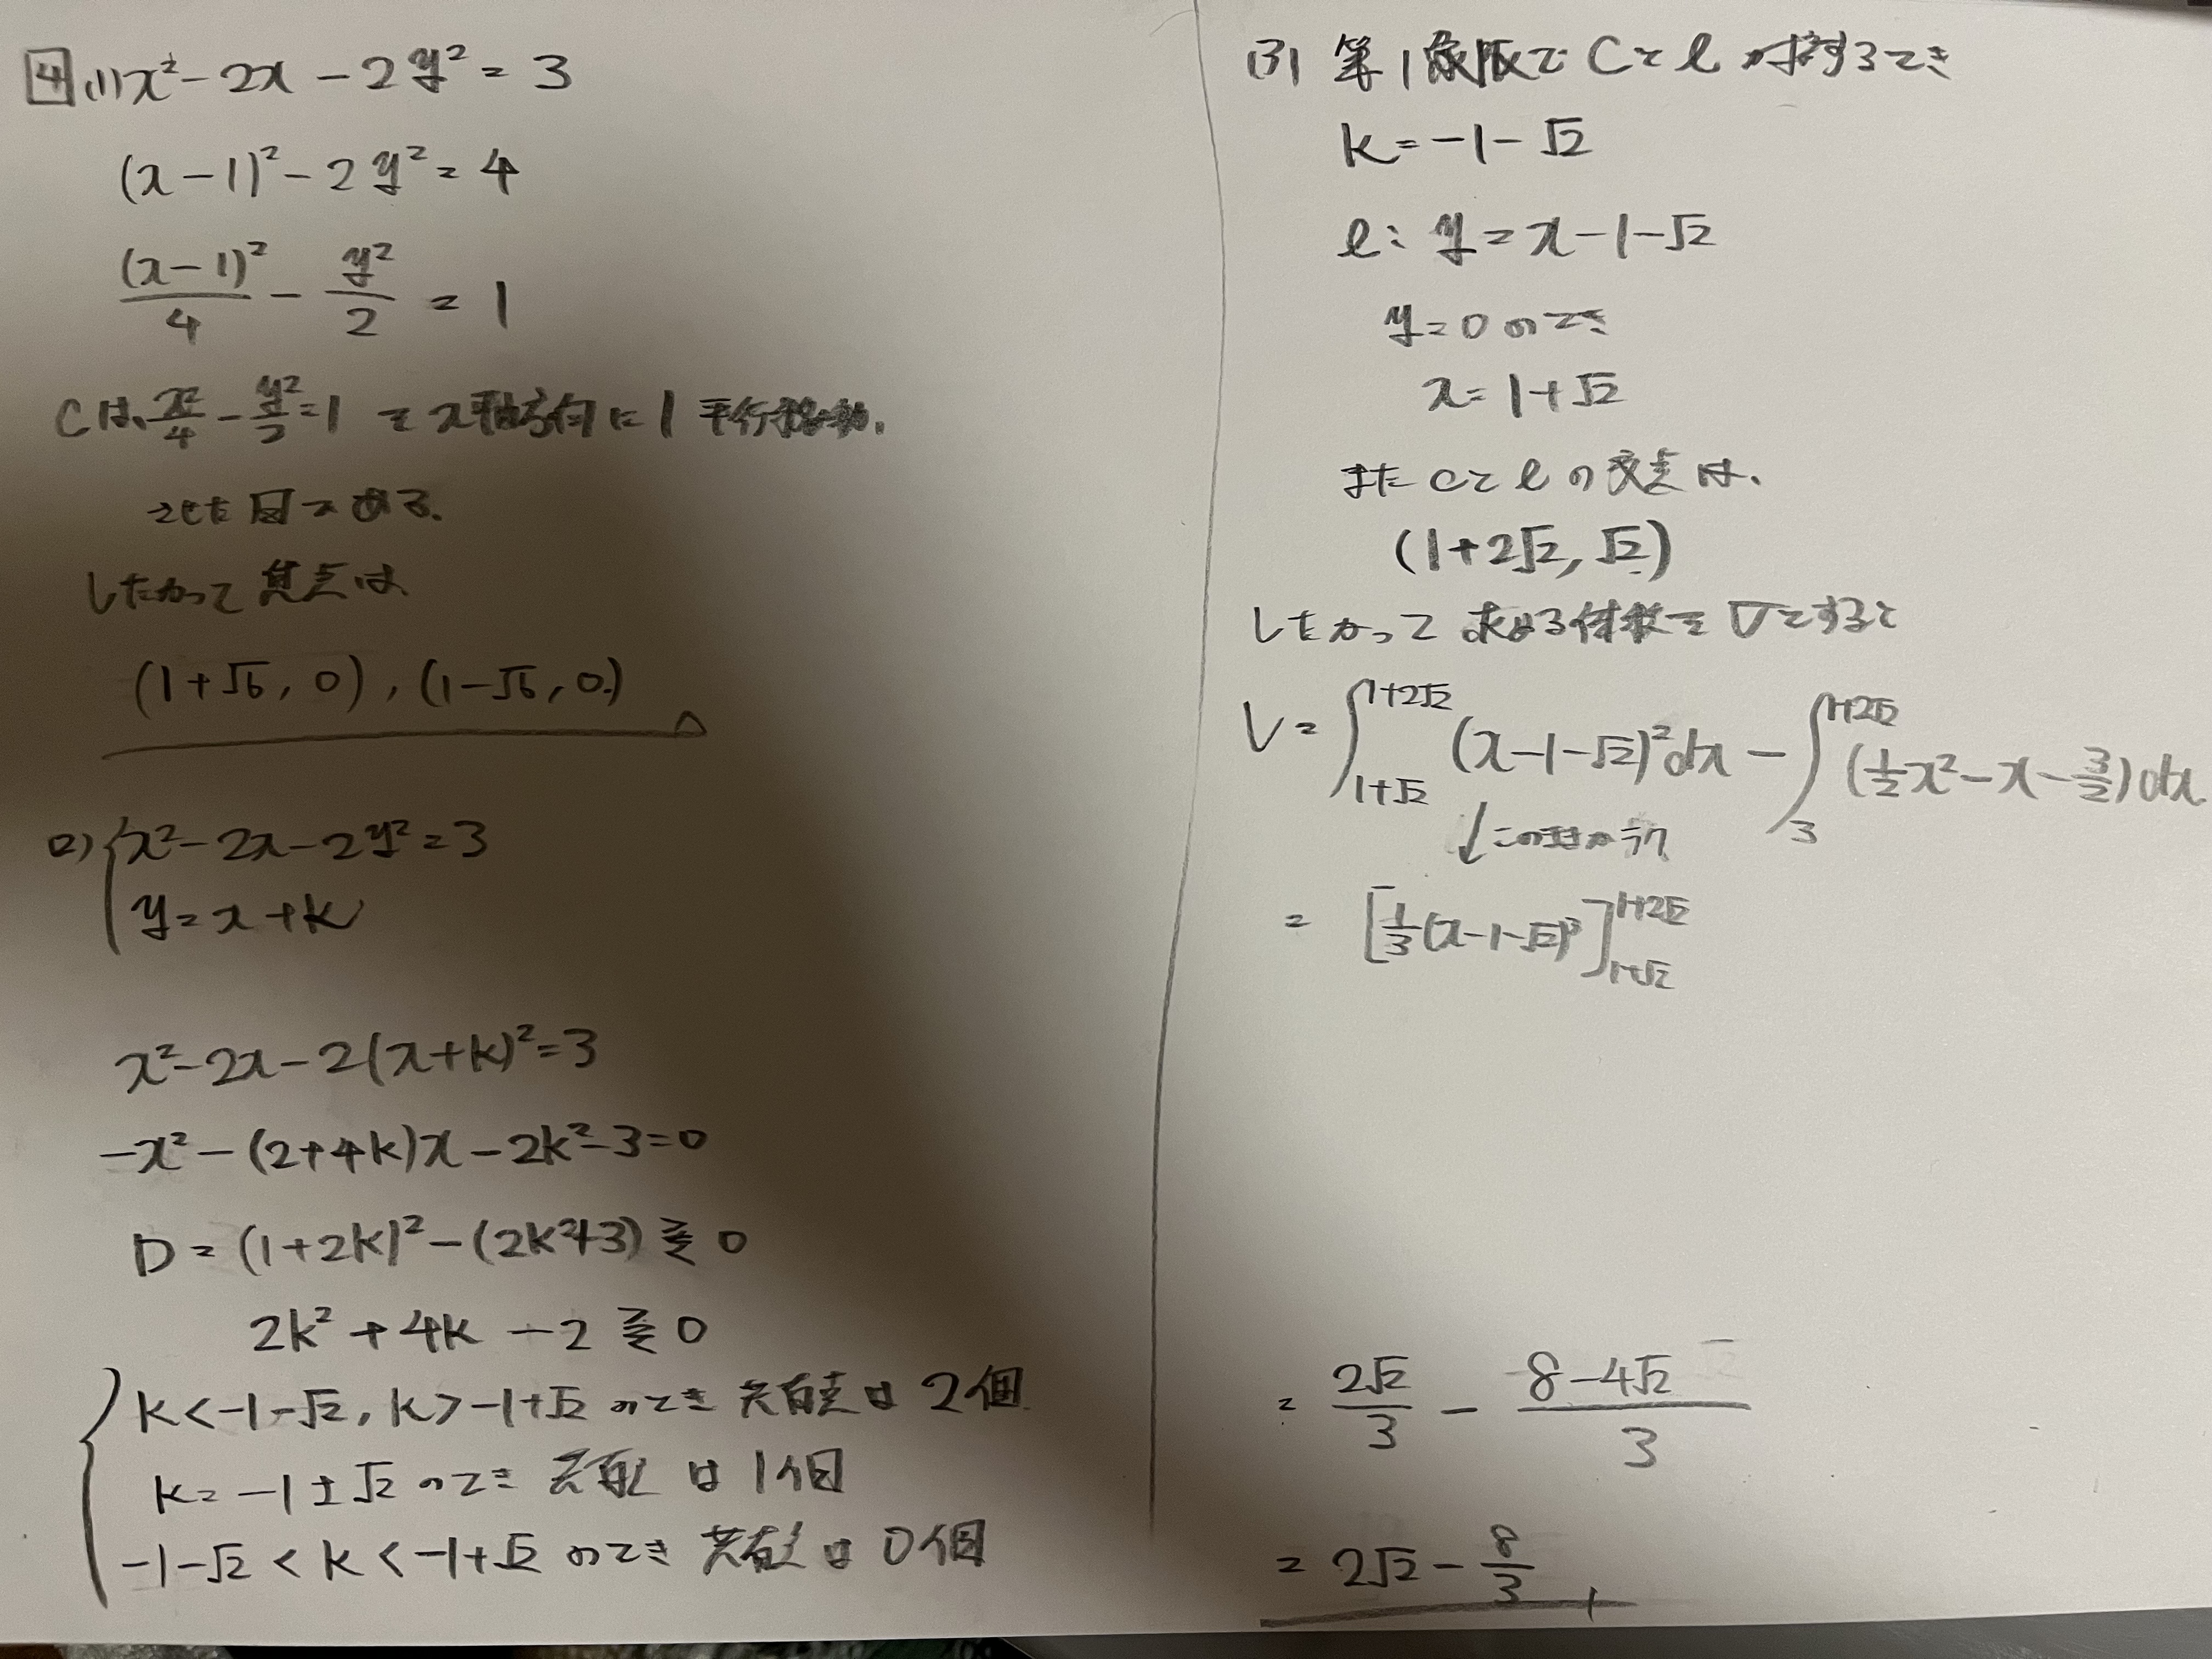 4 (1) x² - 2x - 2y² = 3
(x-1)² - 2y² = 4
(x-1)²/4 - y²/2 = 1
Cは、x²/4 - y²/2 = 1 をx軸方向に1平行移動
させた図である。
したがって焦点は
(1+√6, 0), (1-√6, 0)
(2) { x² - 2x - 2y² = 3
y = x + k
x² - 2x - 2(x+k)² = 3
-x² - (2+4k)x - 2k² - 3 = 0
D = (1+2k)² - (2k²+3) ⋛ 0
2k² + 4k - 2 ⋛ 0
{ k < -1-√2, k > -1+√2 のとき 共有点は 2個
k = -1±√2 のとき 共有点は 1個
-1-√2 < k < -1+√2 のとき 共有点は 0個
(3) 第1象限で Cとlが接するとき
k = -1-√2
l: y = x-1-√2
y = 0 のとき
x = 1+√2
また Cとlの交点は、
(1+2√2, √2)
したがって 求める体積を Vとすると
V = ∫_{1+√2}^{1+2√2} (x-1-√2)² dx - ∫_{3}^{1+2√2} (1/2x² - x - 3/2) dx
↓このまま
= [1/3(x-1-√2)³]_{1+√2}^{1+2√2}
= 2√2/3 - (8-4√2)/3
= 2√2 - 8/3